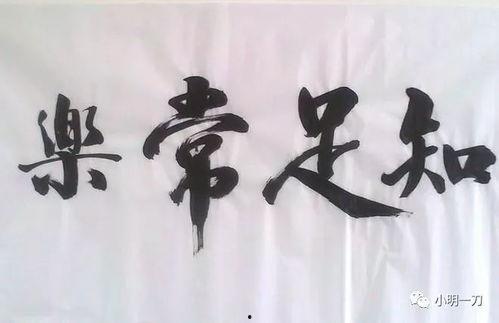 知足常樂
小明一刀